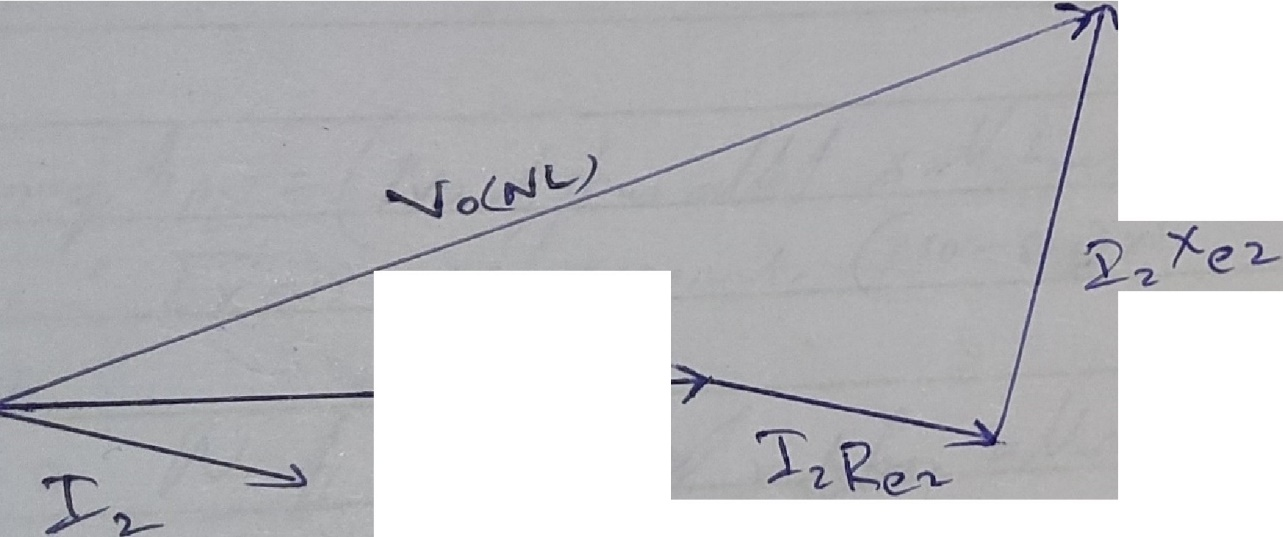 V₀(NL)
I₂Xe₂
I₂Re₂
I₂